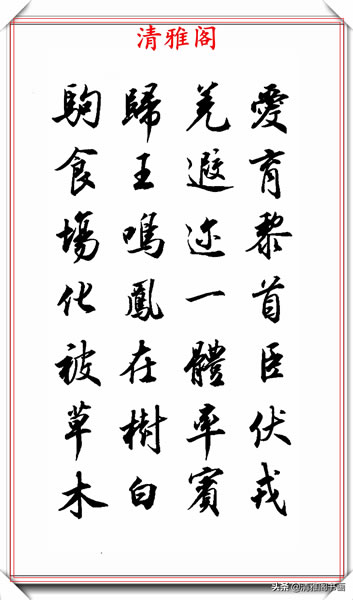 清雅阁
愛育黎首臣伏戎
羌遐迩一體率賓
歸王鳴鳳在樹白
駒食場化被草木
头条 @清雅阁书画